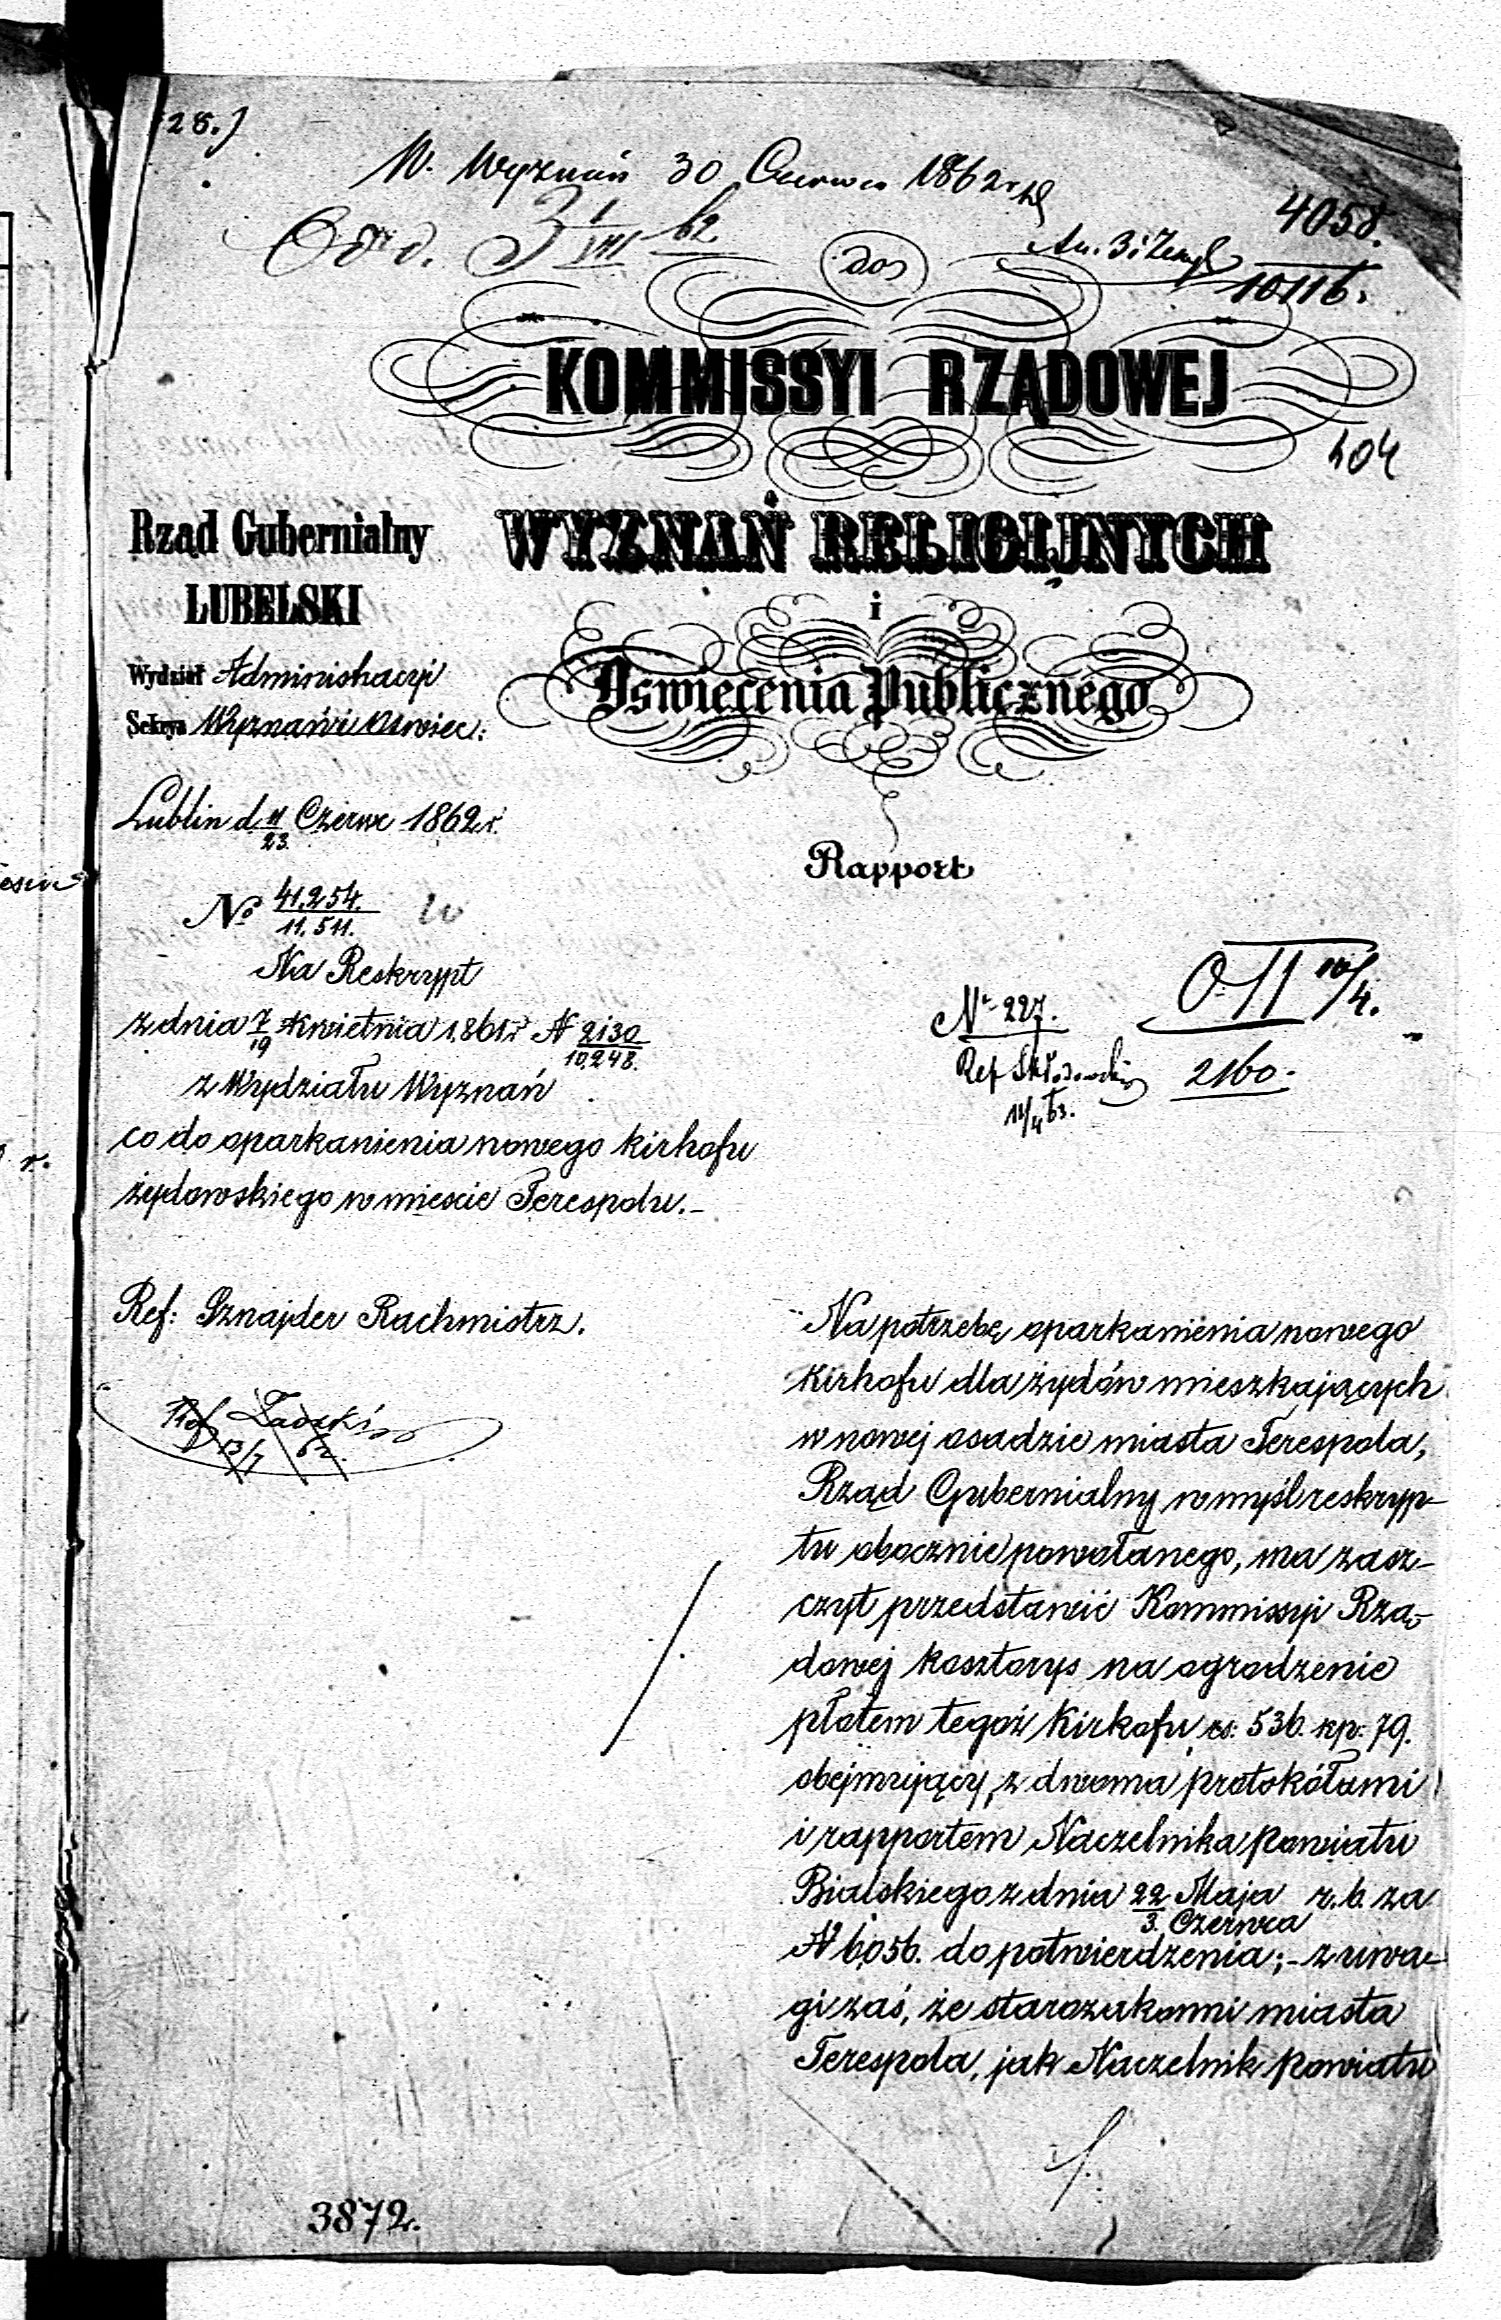 28.)
W. Wyznań 30 Czerwca 1862 r.
4058.
10116.
do
KOMMISSYI RZĄDOWEJ
404
Rząd Gubernialny
LUBELSKI
WYZNAŃ RELIGIJNYCH
i
Oświecenia Publicznego
Wydział Administracyi
Sekcya Wyznań i Oświec:
Lublin d. 11/23 Czerwc 1862 r.
Rapport
No 41,254./11,511.
Na Reskrypt
z dnia 7/19 Kwietnia 1861 r. N 2130/10,248.
z Wydziału Wyznań
co do oparkanienia nowego kirkofu
żydowskiego w mieście Terespolu.-
O. II 10/4.
2160.
Nr 227.
Ref Skłodowski
11/4 63.
Ref: Sznajder Rachmistrz.
Na potrzebę oparkanienia nowego
Kirkofu dla żydów mieszkających
w nowej osadzie miasta Terespola,
Rząd Gubernialny w myśl reskryp-
tu obocznie powołanego, ma zasz-
czyt przedstawić Kommissyi Rzą-
dowej kosztorys na ogrodzenie
płotem tegoż Kirkofu rs: 536. kp: 79.
obejmujący, z dwoma protokółami
i rapportem Naczelnika Powiatu
Bialskiego z dnia 22 Maja/3. Czerwca r. b. za
N 6056. do potwierdzenia;- z uwa-
gi zaś, że starozakonni miasta
Terespola, jak Naczelnik Powiatu
3872.